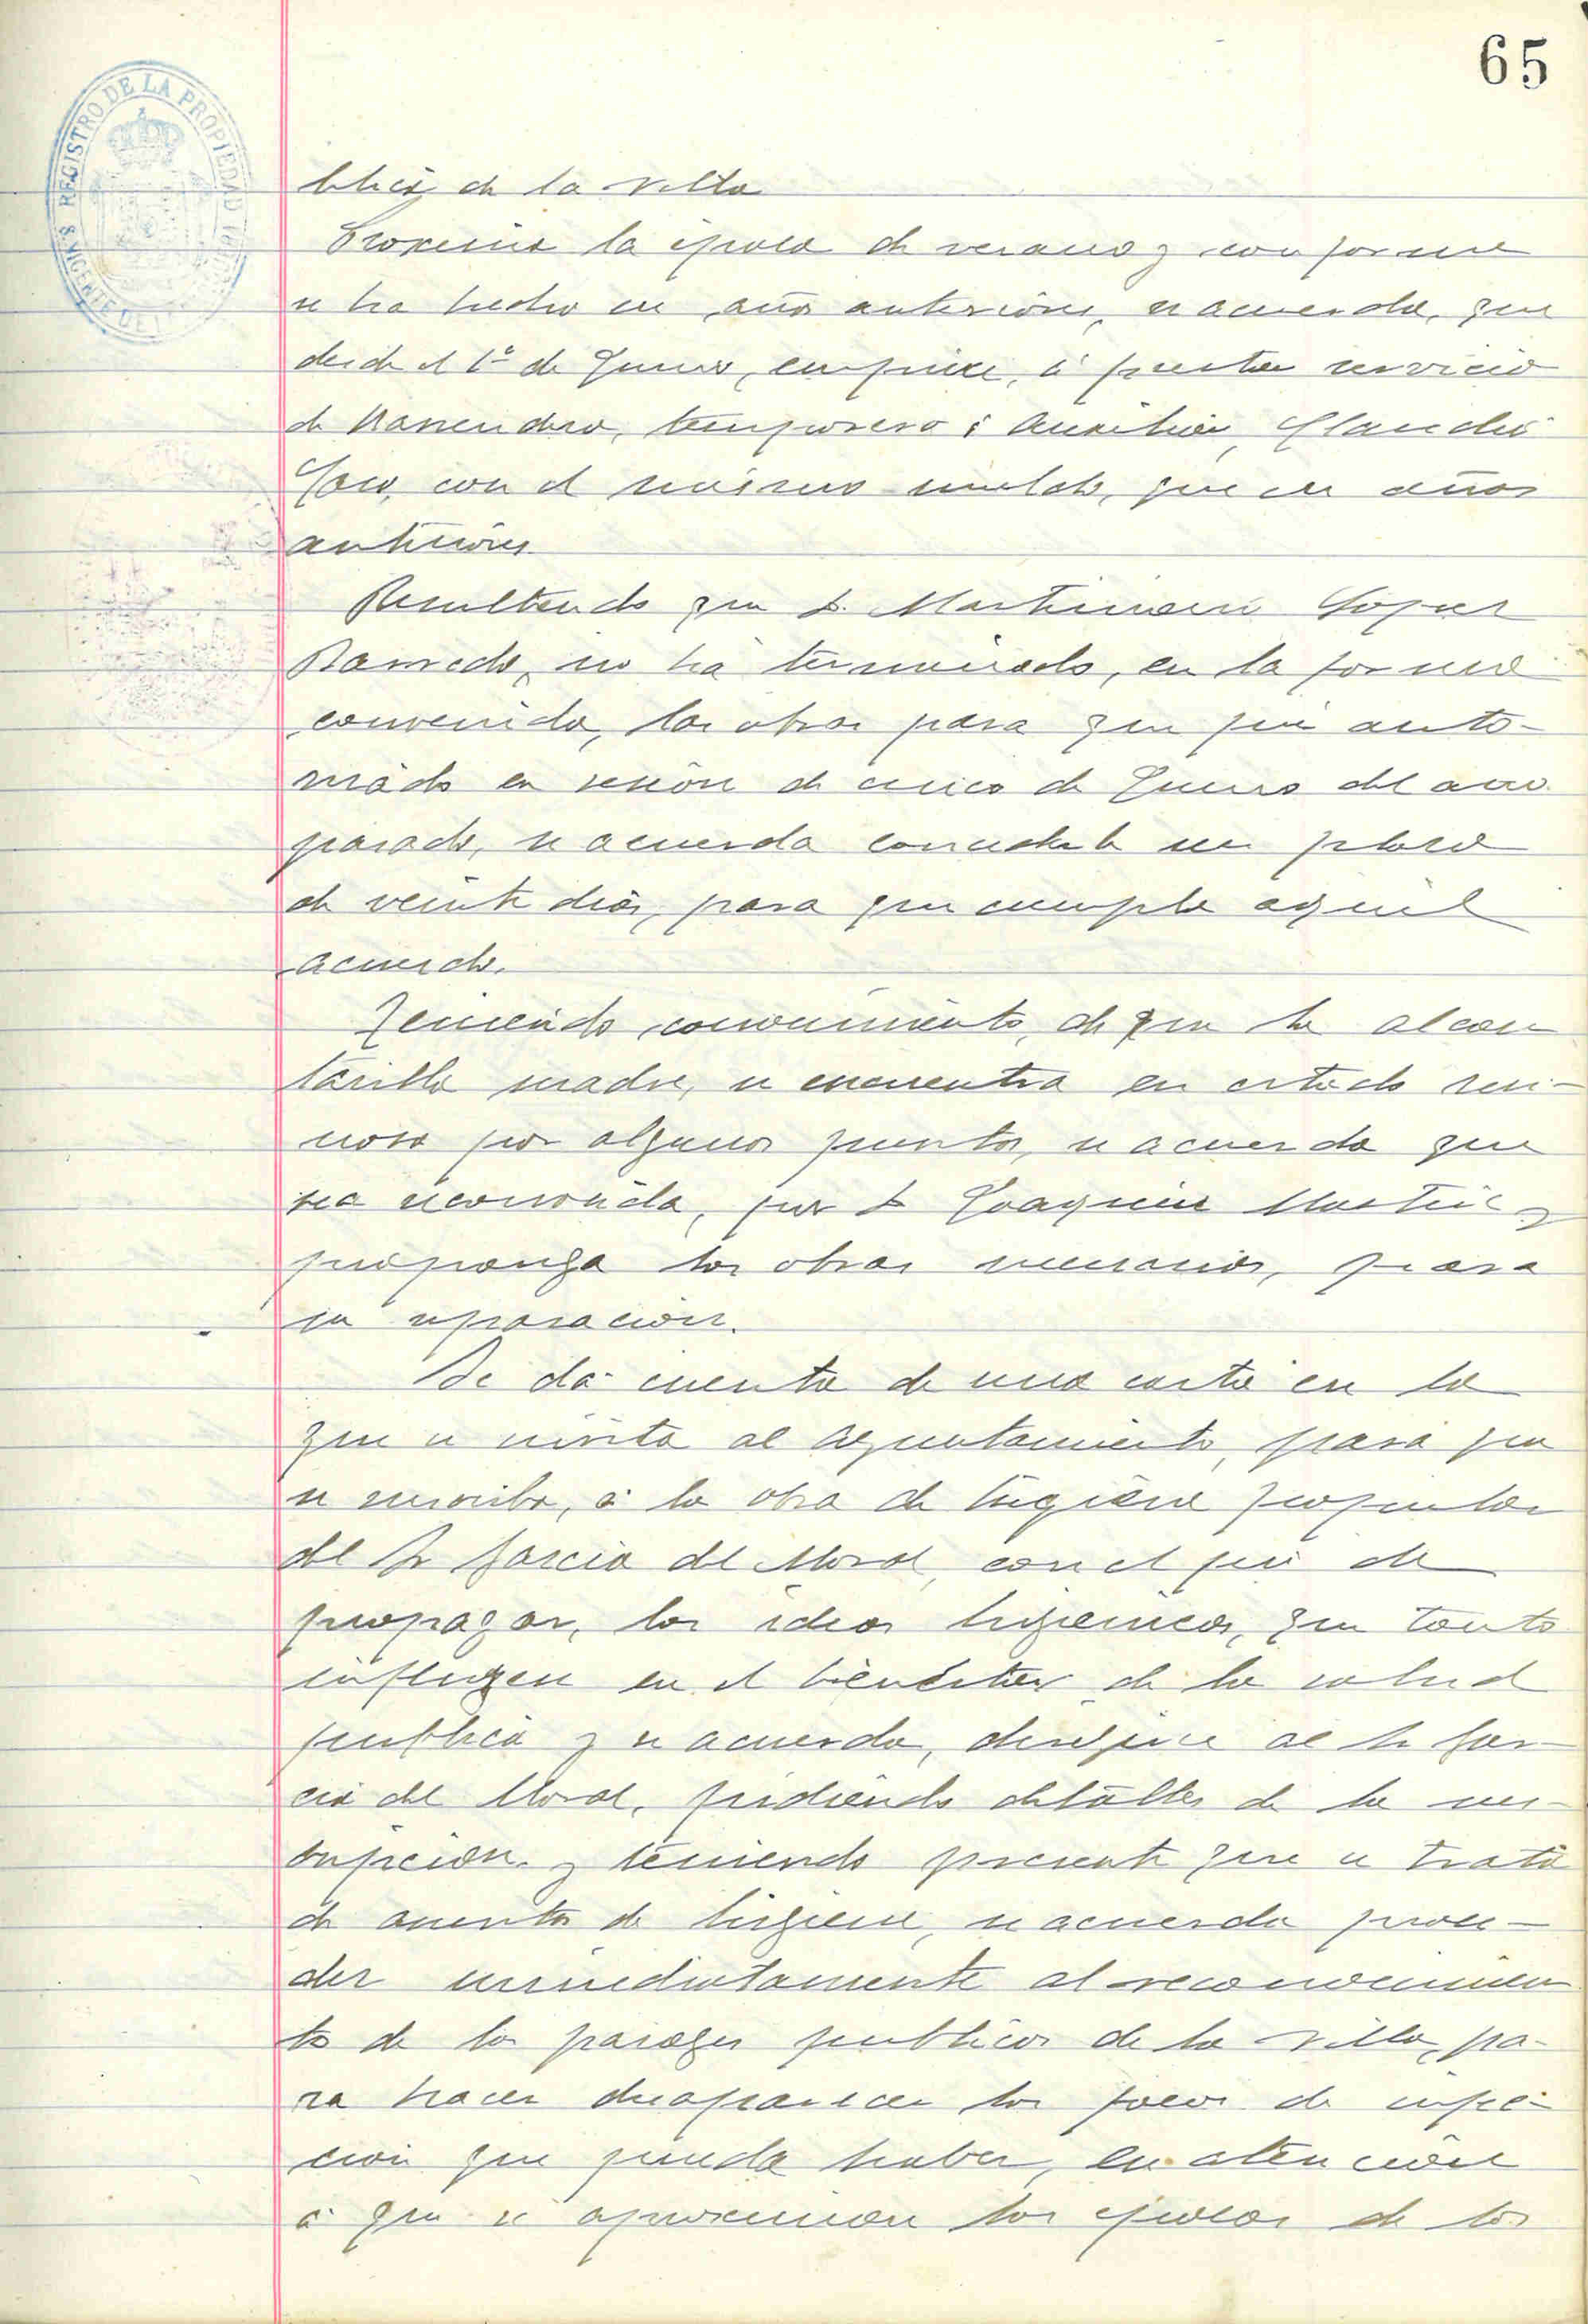 65
REGISTRO DE LA PROPIEDAD
S. VICENTE DE
blicas de la villa
Proxima la época de verano y conforme
se ha hecho en años anteriores, se acuerda, que
desde el 1º de Junio, empiece, á prestar servicio
de Barrendero, temporero ó Auxiliar, Claudio
con el mismo sueldo, que en años
anteriores
Resultando que D. Martiniano Lopez
Barredo, no ha terminado, en la forma
convenida, las obras para que fué auto-
rizado en sesión de cinco de Junio del año
pasado, se acuerda concederle un plazo
de veinte dias, para que cumpla aquel
acuerdo.
Teniendo conocimiento, de que la alcan
tarilla madre, se encuentra en estado rui-
noso por algunos puntos, se acuerda que
sea reconocida, por D Joaquin y
proponga las obras necesarias, para
su reparacion.
Se dá cuenta de una carta en la
que se invita al Ayuntamiento, para que
se suscriba, á la obra de higiene popular
del Sr Garcia del Moral, con el fin de
propagar, las ideas higienicas, que tanto
influyen en el bienestar de la salud
publica y se acuerda, dirigirse al Sr Gar
cia del Moral, pidiendo detalles de la sus
cripcion y teniendo presente que se trata
de asuntos de higiene, se acuerda proce-
der inmediatamente al reconocimien
to de los parajes publicos de la villa, pa-
ra hacer desaparecer los focos de infec-
cion que pueda haber, en atencion
á que se aproximan las épocas de los